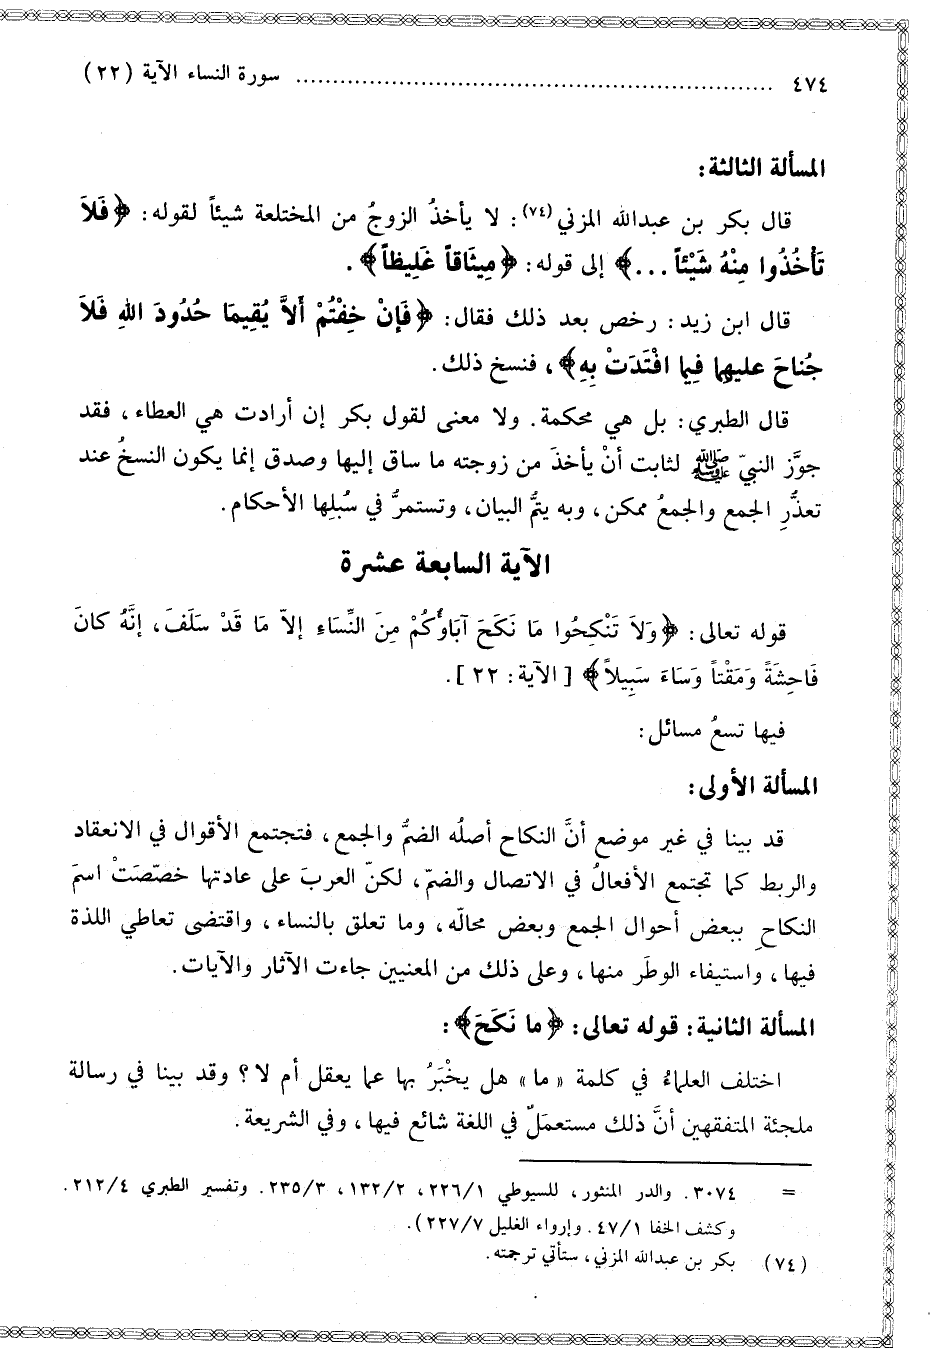 ٤٧٤ ........................................................ سورة النساء الآية (٢٢)
المسألة الثالثة:
قال بكر بن عبدالله المزني(٧٤): لا يأخذُ الزوجُ من المختلعة شيئاً لقوله: ﴿فَلاَ
تَأْخُذُوا مِنْهُ شَيْئاً ...﴾ إلى قوله: ﴿مِيثَاقاً غَلِيظاً﴾.
قال ابن زيد: رخص بعد ذلك فقال: ﴿فَإِنْ خِفْتُمْ أَلاَّ يُقِيمَا حُدُودَ اللهِ فَلاَ
جُناحَ عليهِما فِيما افْتَدَتْ بِهِ﴾، فنسخ ذلك.
قال الطبري: بل هي محكمة. ولا معنى لقول بكر إن أرادت هي العطاء، فقد
جوَّز النبيّ ﷺ لثابت أنْ يأخذَ من زوجته ما ساق إليها وصدق إنما يكون النسخُ عند
تعذُّرِ الجمع والجمعُ ممكن، وبه يتمُّ البيان، وتستمرُّ في سُبلِها الأحكام.
الآية السابعة عشرة
قوله تعالى: ﴿وَلاَ تَنْكِحُوا مَا نَكَحَ آبَاؤُكُمْ مِنَ النِّسَاءِ إلاّ مَا قَدْ سَلَفَ، إنَّهُ كانَ
فَاحِشَةً وَمَقْتاً وَسَاءَ سَبِيلاً﴾ [الآية: ٢٢].
فيها تسعُ مسائل:
المسألة الأولى:
قد بينا في غير موضع أنَّ النكاح أصلُه الضمُّ والجمع، فتجتمع الأقوال في الانعقاد
والربط كما تجتمع الأفعالُ في الاتصال والضمّ، لكنّ العربَ على عادتها خصّصَتْ اسمَ
النكاحِ ببعض أحوال الجمع وبعض محالّه، وما تعلق بالنساء، واقتضى تعاطي اللذة
فيها، واستيفاء الوطَر منها، وعلى ذلك من المعنيين جاءت الآثار والآيات.
المسألة الثانية: قوله تعالى: ﴿ما نَكَحَ﴾:
اختلف العلماءُ في كلمة «ما» هل يخْبَرُ بها عما يعقل أم لا؟ وقد بينا في رسالة
ملجئة المتفقهين أنَّ ذلك مستعمَلٌ في اللغة شائع فيها، وفي الشريعة.
= ٣٠٧٤. والدر المنثور، للسيوطي ٢٢٦/١، ١٣٢/٢، ٢٣٥/٣. وتفسير الطبري ٢١٢/٤.
وكشف الخفا ٤٧/١. وإرواء الغليل ٢٢٧/٧).
(٧٤) بكر بن عبدالله المزني، ستأتي ترجمته.